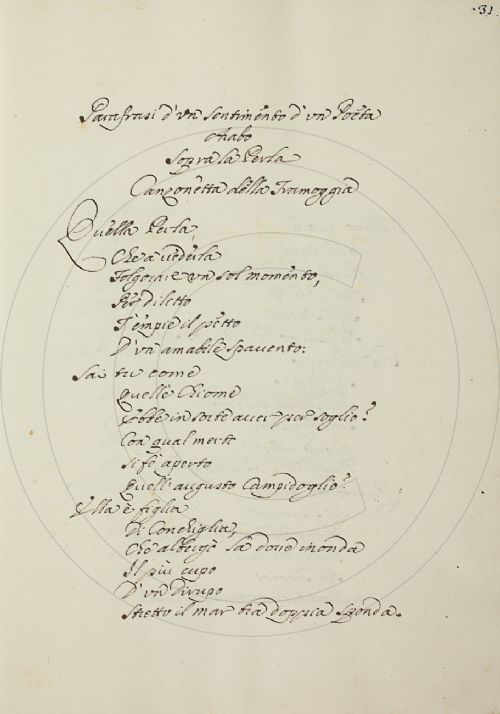 31
Parafrasi d'un sentimento d'un Poéta
Arabo
Sopra la Perla
Canzonetta della Tramoggia
Quella Perla,
Che a vederla
Folgorare un sol momento,
Per diletto
T'empie il petto
D'un amabile spavento:
Sai tu come
Quelle Chiome
Ebbe in sorte aver per soglio?
Con qual merto
Si fe aperto
Quell'augusto Campidoglio?
Ella è figlia
Di Conchiglia,
Che albergò là dove inonda
Il più cupo
D'un dirupo
Stretto il mar tra doppia sponda.